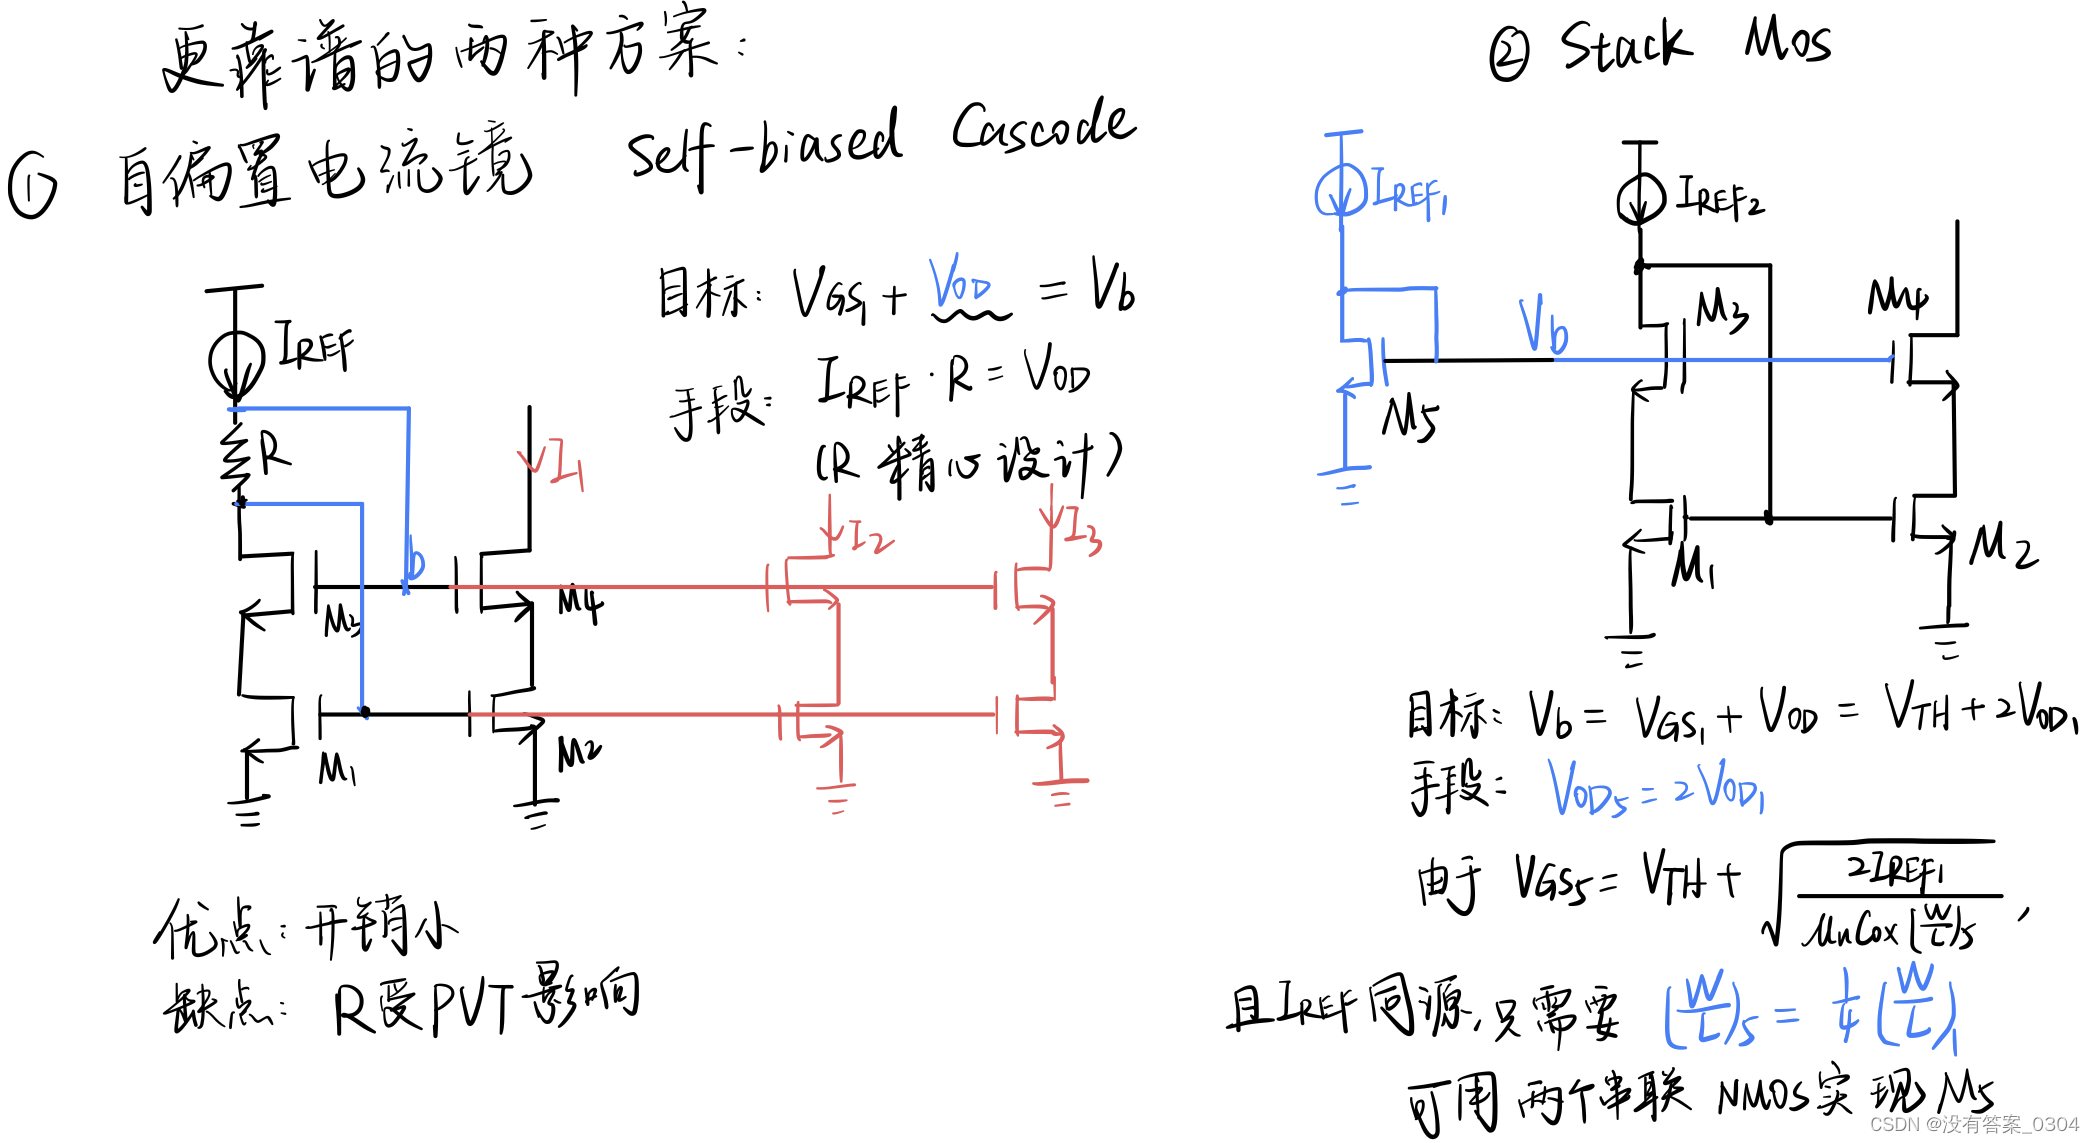 更靠谱的两种方案：
① 自偏置电流镜 Self-biased Cascode
IREF
R
b
I1
M3
M4
M1
M2
I2
I3
目标：VGS1 + VOD = Vb
手段：IREF · R = VOD
(R 精心设计)
优点：开销小
缺点：R受PVT影响
② Stack Mos
IREF1
IREF2
Vb
M3
M4
M5
M1
M2
目标：Vb = VGS1 + VOD = VTH + 2VOD1
手段：VOD5 = 2VOD1
由于 VGS5 = VTH + √(2IREF1 / μnCox(W/L)5) ，
且IREF同源，只需要 (W/L)5 = 1/4 (W/L)1
可用两个串联 NMOS实现M5
CSDN @没有答案_0304